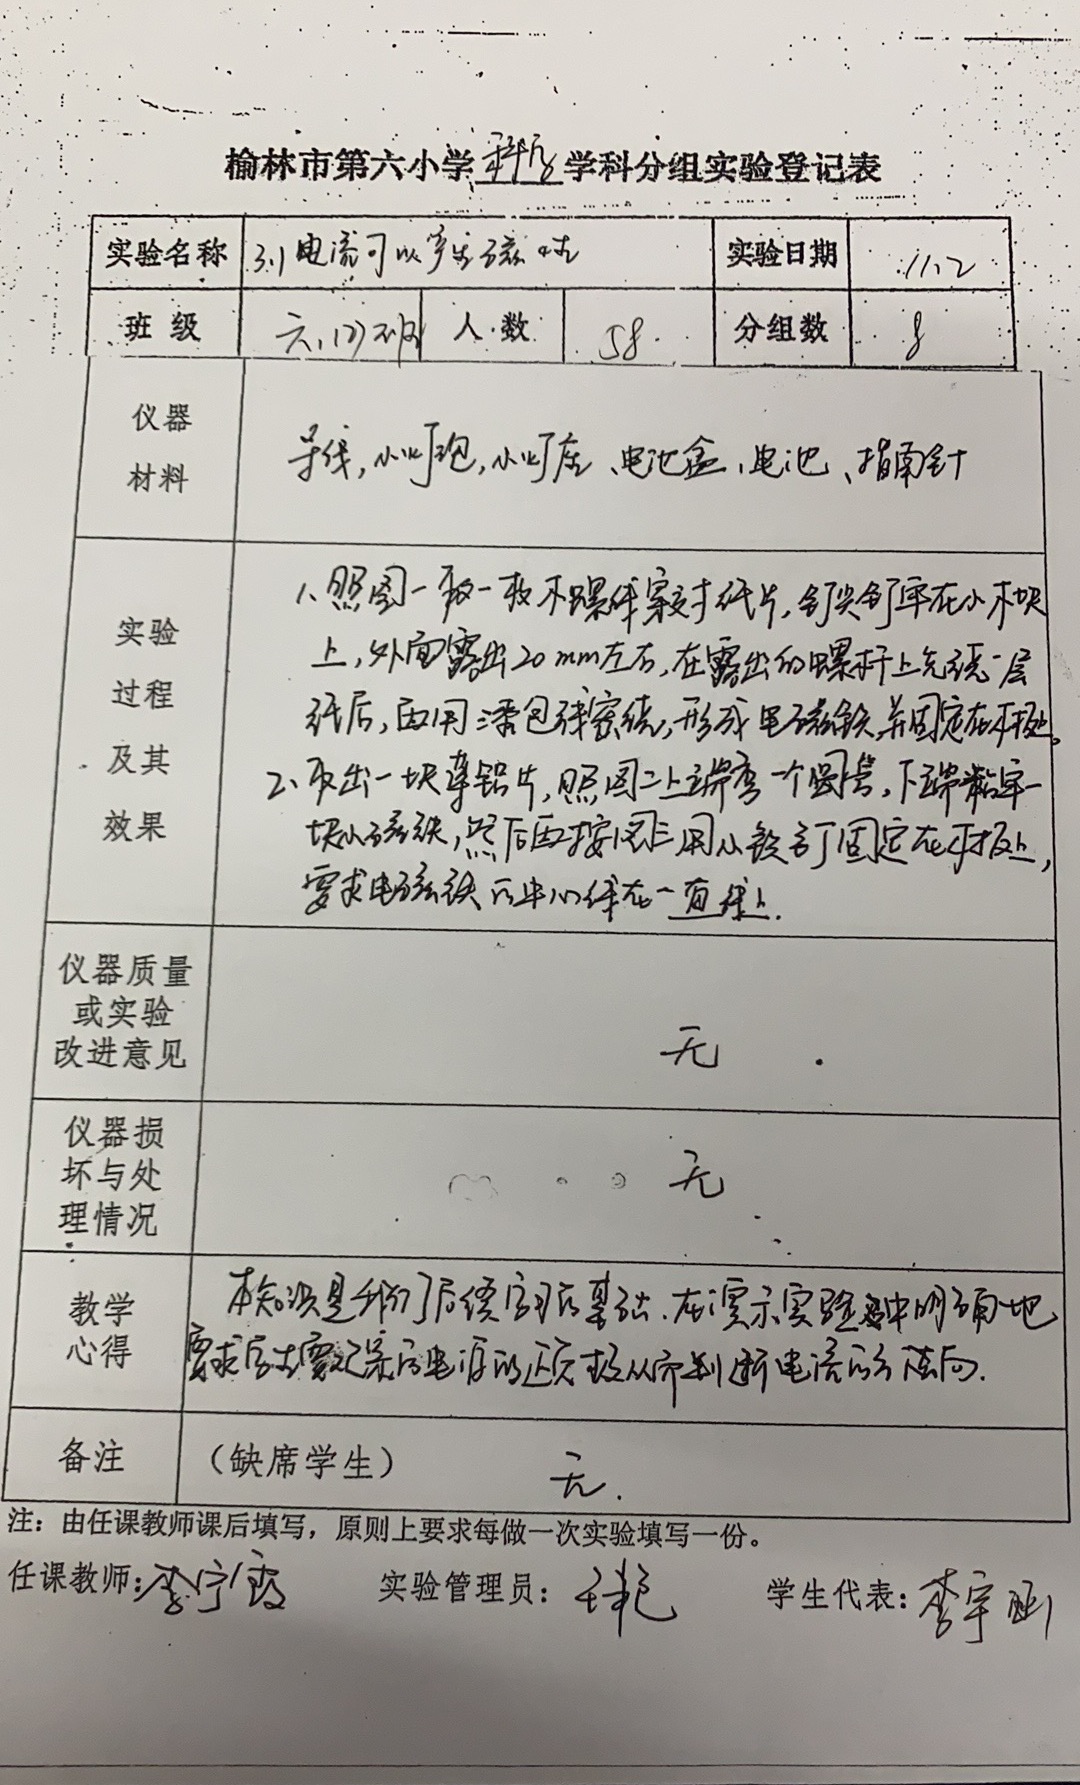 榆林市第六小学科学学科分组实验登记表
实验名称 3.1电流可以产生磁性 实验日期 11.2
班级 六.(3)班 人数 58 分组数 8
仪器
材料
导线,小灯泡,小灯座、电池盒、电池、指南针
实验
过程
及其
效果
1、照图一取一枚木螺丝穿过寸纸片,钉尖钉牢在小木块
上,外面露出20mm左右,在露出的螺杆上先绕一层
纸后,再用漆包线密绕,形成电磁铁,并固定在木板上。
2、取出一块薄铝片,照图二上端弯一个圆圈,下端粘牢一
块小磁铁,然后再按图三用小铁钉固定在木板上,
要求电磁铁的中心线在一直线上.
仪器质量
或实验
改进意见
无
仪器损
坏与处
理情况
无
教学
心得
本知识是我们了后续学习的基础.在演示实验中明确地
要求学生要记录的电源的正负极从而判断电流的方向.
备注 (缺席学生) 无.
注:由任课教师课后填写,原则上要求每做一次实验填写一份。
任课教师:李宁霞 实验管理员: 学生代表:李宇